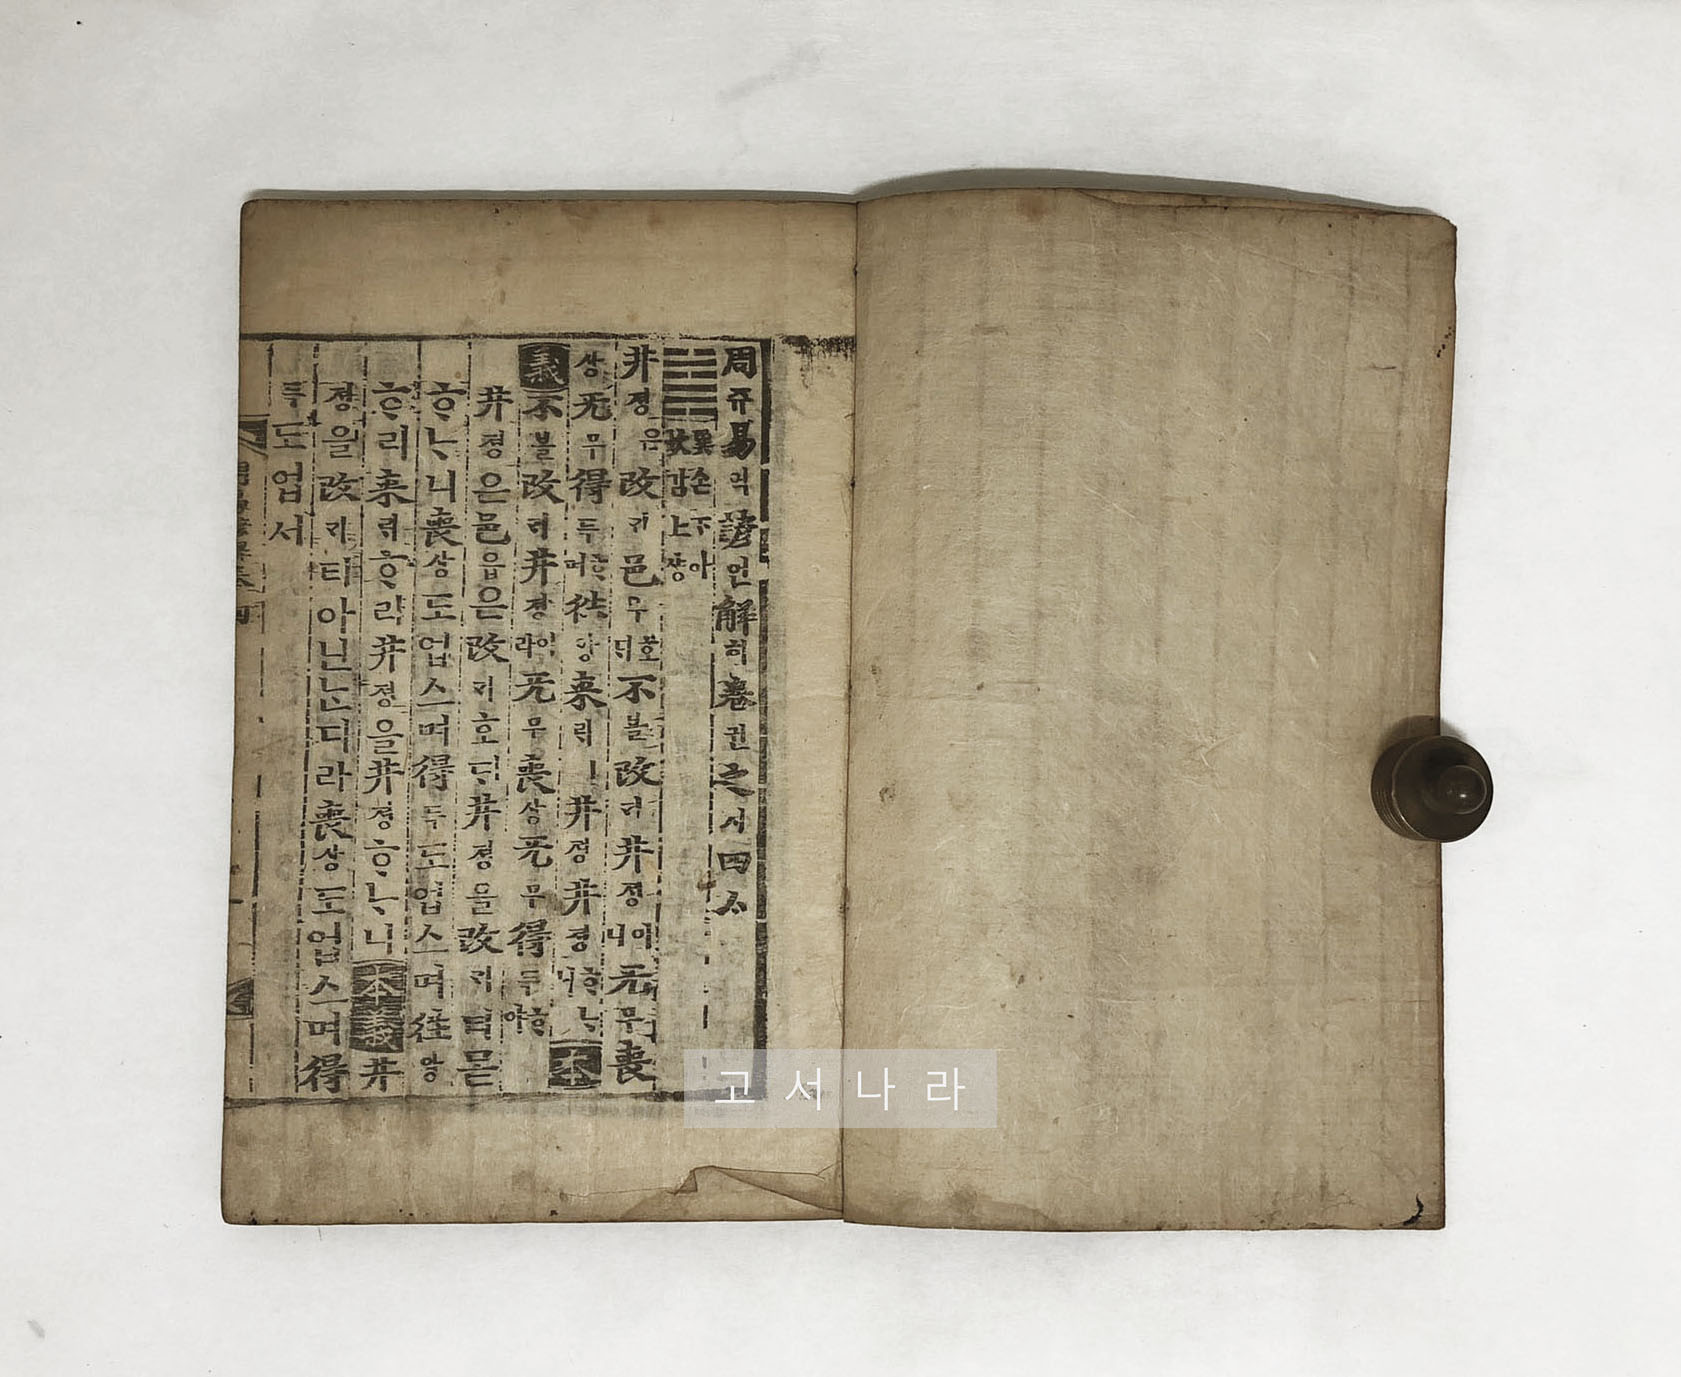 周쥬易역諺언解ᄒᆡ卷권之지四ᄉᆞ
巽손下하
坎감上샹
井졍은改ᄀᆡ邑읍호ᄃᆡ不블改ᄀᆡ井졍이니无무喪
상无무得득ᄒᆞ며往왕來ᄅᆡㅣ井졍井졍ᄒᆞᄂᆞ니本
義不블改ᄀᆡ井졍이라无무喪상无무得득ᄒᆞ야
井졍은邑읍은改ᄀᆡ호ᄃᆡ井졍을改ᄀᆡ티몯
ᄒᆞᄂᆞ니喪상도업스며得득도업스며往왕
ᄒᆞ리來ᄅᆡᄒᆞ리井졍을井졍ᄒᆞᄂᆞ니本義井
졍을改ᄀᆡ티아닌ᄂᆞᆫ디라喪상도업스며得
득도업서
周易諺解卷四
고서나라